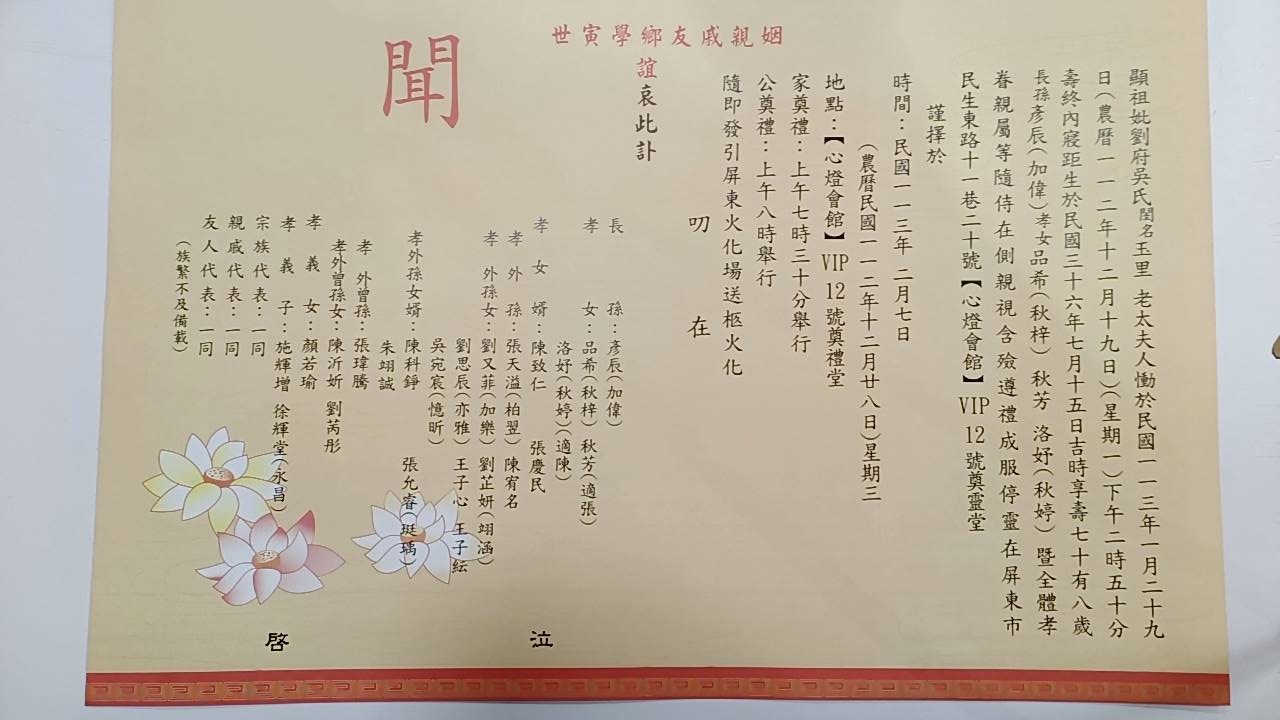 顯祖妣劉府吳氏閨名玉里 老太夫人慟於民國一一三年一月二十九
日(農曆一一二年十二月十九日)(星期一)下午二時五十分
壽終內寢距生於民國三十六年七月十五日吉時享壽七十有八歲
長孫彥辰(加偉)孝女品希(秋梓) 秋芳 洛妤(秋婷) 暨全體孝
眷親屬等隨侍在側親視含殮遵禮成服停靈在屏東市
民生東路十一巷二十號【心燈會館】VIP 12 號奠靈堂
謹擇於
時間：民國一一三年 二月七日
(農曆民國一一二年十二月廿八日)星期三
地點：【心燈會館】VIP 12 號奠禮堂
家奠禮：上午七時三十分舉行
公奠禮：上午八時舉行
隨即發引屏東火化場送柩火化
叨 在
姻親戚友鄉學寅世
誼哀此訃
聞
長 孫：彥辰(加偉)
孝 女：品希(秋梓) 秋芳(適張)
洛妤(秋婷)(適陳)
孝 女 婿：陳致仁 張慶民
孝 外 孫：張天溢(柏翌) 陳宥名
孝 外孫女：劉又菲(加樂) 劉芷妍(翊涵)
劉思辰(亦雅) 王子心 王子紜
吳宛宸(憶昕)
孝外孫女婿：陳科錚 張允睿(珽瑀)
朱翊誠
孝 外曾孫：張瑋騰
孝外曾孫女：陳沂妡 劉芮彤
孝 義 女：顏若瑜
孝 義 子：施輝增 徐輝堂(永昌)
宗族代表：一同
親戚代表：一同
友人代表：一同
(族繁不及備載)
泣
啓